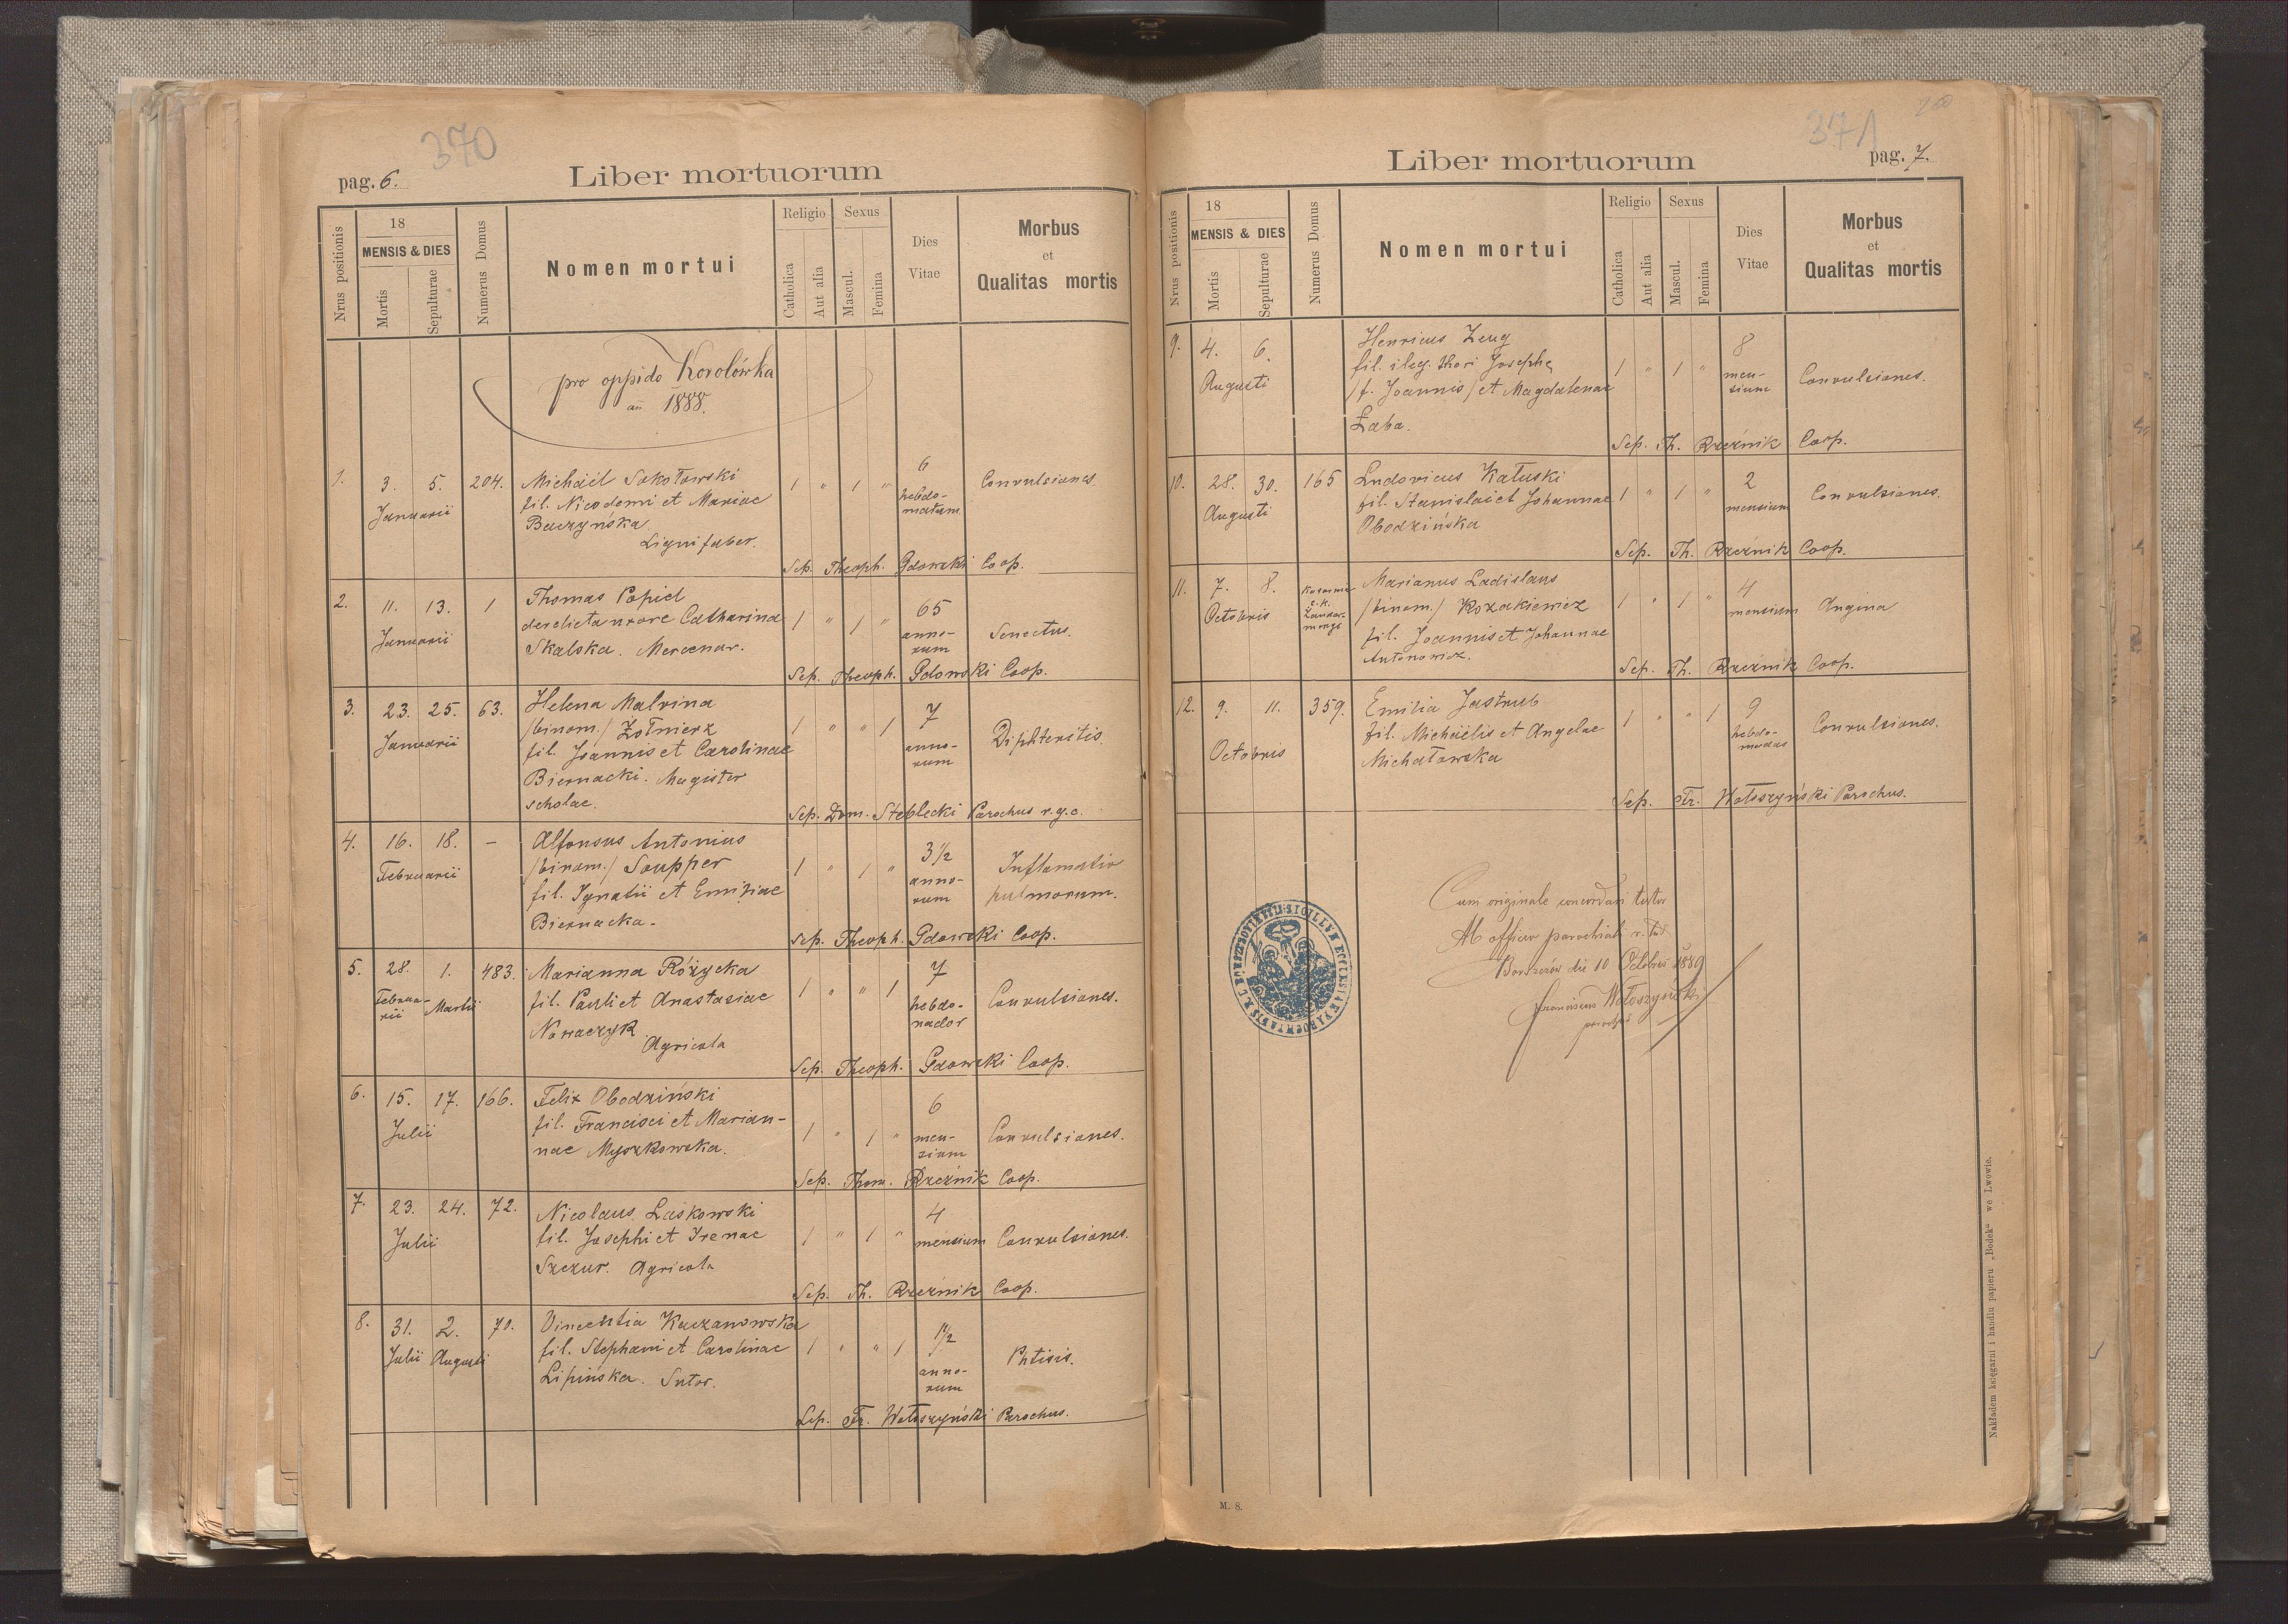 370
pag. 6.
Liber mortuorum
Nrus positionis
18
MENSIS & DIES
Mortis
Sepulturae
Numerus Domus
Nomen mortui
Religio
Catholica
Aut alia
Sexus
Mascul.
Femina
Dies
Vitae
Morbus
et
Qualitas mortis
pro oppido Korolówka
an 1888.
1. 3. 5. 204. Michäel Sokołowski 1 " 1 " 6 Convulsiones.
Januarii fil. Nicodemi et Mariae hebdo-
Buczyńska matum
Lignifaber.
Sep. Theoph. Gdowski Coop.
2. 11. 13. 1 Thomas Popiel 1 " 1 " 65
Januarii derelicta uxore Catharina anno- Senectus.
Skalska. Mercenar. rum
Sep. Theoph. Gdowski Coop.
3. 23. 25. 63. Helena Malvina 1 " " 1 7
Januarii /binom./ Żołnierz anno- Diphteritis.
fil. Joannis et Carolinae rum
Biernacki. Magister
scholae.
Sep. Dom. Steblecki Parochus r.g.c.
4. 16. 18. – Alfonsus Antonius 1 " 1 " 3 1/2 Inflamatio
Februarii /binom./ Soupper anno- pulmorum.
fil. Ignatii et Emiliae rum
Biernacka.
Sep. Theoph. Gdowski Coop.
5. 28. 1. 483. Marianna Różycka 1 " " 1 7
Februa- Martii fil. Pauli et Anastasiae hebdo- Convulsiones.
rii Nowaczyk. nador
Agricola
Sep. Theoph. Gdowski Coop.
6. 15. 17. 166. Felix Obodziński 1 " 1 " 6
Julii fil. Francisci et Marian- men- Convulsiones.
nae Myszkowska. sium
Sep. Thom. Rzeźnik Coop.
7. 23. 24. 72. Nicolaus Laskowski 1 " 1 " 4
Julii fil. Josephi et Irenae mensium Convulsiones.
Szczur. Agricola
Sep. Th. Rzeźnik Coop.
8. 31. 2. 70. Vincentia Kaczanowska 1 " " 1 1 1/2
Julii Augusti fil. Stephani et Carolinae anno- Phtisis.
Lipińska. Sutor. rum
Sep. Fr. Wołoszyński Parochus.
371
pag. 7.
Liber mortuorum
Nrus positionis
18
MENSIS & DIES
Mortis
Sepulturae
Numerus Domus
Nomen mortui
Religio
Catholica
Aut alia
Sexus
Mascul.
Femina
Dies
Vitae
Morbus
et
Qualitas mortis
9. 4. 6. Henricus Zeug 1 " 1 " 8
Augusti fil. ileg. thori Josephe men- Convulsiones.
/f. Joannis/ et Magdalenae sium
Łaba.
Sep. Th. Rzeźnik Coop.
10. 28. 30. 165 Ludovicus Kałuski 1 " 1 " 2
Augusti fil. Stanislai et Johannae mensium Convulsiones.
Obodzińska
Sep. Th. Rzeźnik Coop.
11. 7. 8. Marianus Ladislaus 1 " 1 " 4
Octobris c.k. /binom./ Kozakiewicz mensium Angina
fil. Joannis et Johannae
Antonowicz.
Sep. Th. Rzeźnik Coop.
12. 9. 11. 359. Emilia Jastrub 1 " " 1 9
Octobris fil. Michäelis et Angelae hebdo- Convulsiones.
Michałowska madas
Sep. Fr. Wołoszyński Parochus.
Cum originale concordari testor
Ab officio parochiali r. lat.
Borszczów die 10 Octobris 1889
Franciscus Wołoszyński
parochus
M. 8.
Nakładem księgarni i handlu papieru „Bodek" we Lwowie.